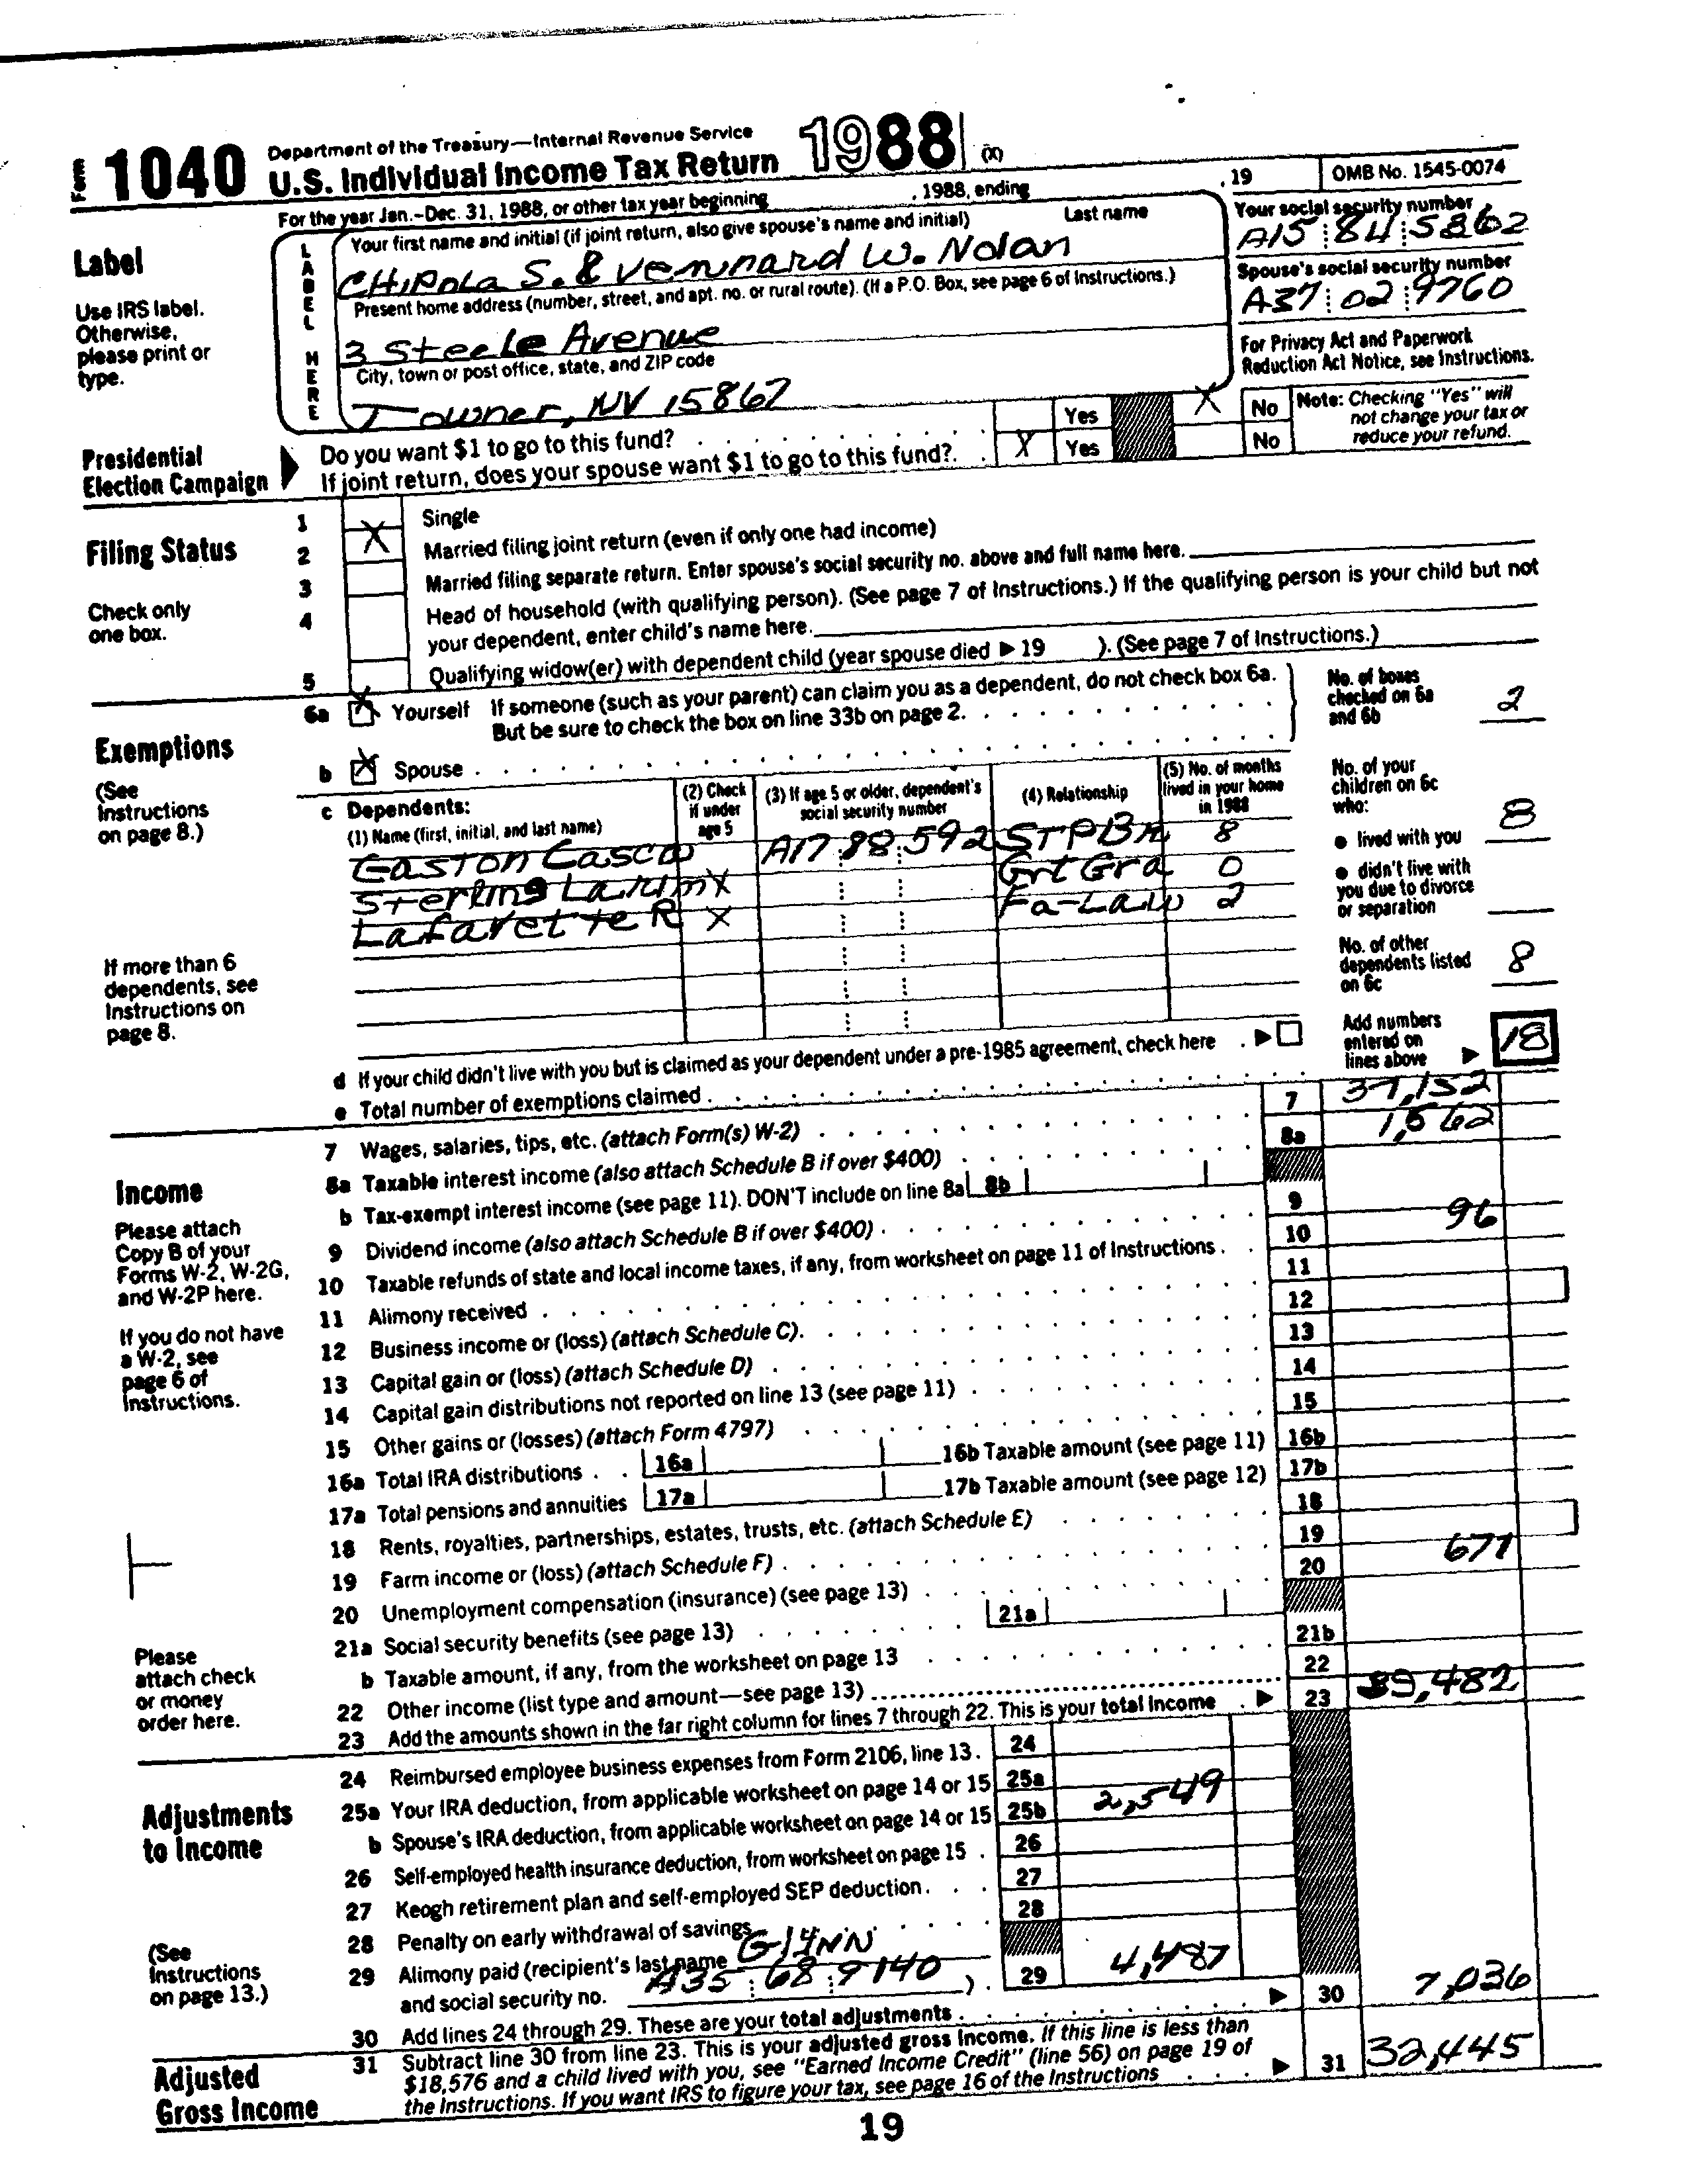 Form 1040 Department of the Treasury—Internal Revenue Service
U.S. Individual Income Tax Return 1988 (X)
For the year Jan.–Dec. 31, 1988, or other tax year beginning , 1988, ending , 19 OMB No. 1545-0074
Label
Use IRS label.
Otherwise,
please print or
type.
LABEL HERE
Your first name and initial (if joint return, also give spouse's name and initial) Last name
CHIPOLA S. & Vennard W. Nolan
Your social security number
A15 84 5862
Present home address (number, street, and apt. no. or rural route). (If a P.O. Box, see page 6 of Instructions.)
3 Steele Avenue
Spouse's social security number
A37 02 9760
City, town or post office, state, and ZIP code
Towner, NV 15867
For Privacy Act and Paperwork
Reduction Act Notice, see Instructions.
Presidential
Election Campaign
Do you want $1 to go to this fund? Yes X No
If joint return, does your spouse want $1 to go to this fund? X Yes No
Note: Checking "Yes" will
not change your tax or
reduce your refund.
Filing Status
Check only
one box.
1 Single
2 X Married filing joint return (even if only one had income)
3 Married filing separate return. Enter spouse's social security no. above and full name here.
4 Head of household (with qualifying person). (See page 7 of Instructions.) If the qualifying person is your child but not
your dependent, enter child's name here.
5 Qualifying widow(er) with dependent child (year spouse died ▶ 19 ). (See page 7 of Instructions.)
Exemptions
(See
Instructions
on page 8.)
If more than 6
dependents, see
Instructions on
page 8.
6a X Yourself If someone (such as your parent) can claim you as a dependent, do not check box 6a.
But be sure to check the box on line 33b on page 2.
b X Spouse
No. of boxes
checked on 6a
and 6b 2
c Dependents:
(1) Name (first, initial, and last name) (2) Check if under age 5 (3) If age 5 or older, dependent's social security number (4) Relationship (5) No. of months lived in your home in 1988
Easton Casco A17 88 592 STPBR 8
Sterling Larim X GrtGra 0
Lafayette R X Fa-Law 2
No. of your
children on 6c
who:
● lived with you 8
● didn't live with
you due to divorce
or separation
No. of other
dependents listed
on 6c 8
d If your child didn't live with you but is claimed as your dependent under a pre-1985 agreement, check here ▶
e Total number of exemptions claimed
Add numbers
entered on
lines above ▶ 18
Income
Please attach
Copy B of your
Forms W-2, W-2G,
and W-2P here.
If you do not have
a W-2, see
page 6 of
Instructions.
Please
attach check
or money
order here.
7 Wages, salaries, tips, etc. (attach Form(s) W-2) 7 37,152
8a Taxable interest income (also attach Schedule B if over $400) 8a 1,562
b Tax-exempt interest income (see page 11). DON'T include on line 8a 8b
9 Dividend income (also attach Schedule B if over $400) 9
10 Taxable refunds of state and local income taxes, if any, from worksheet on page 11 of Instructions 10 96
11 Alimony received 11
12 Business income or (loss) (attach Schedule C) 12
13 Capital gain or (loss) (attach Schedule D) 13
14 Capital gain distributions not reported on line 13 (see page 11) 14
15 Other gains or (losses) (attach Form 4797) 15
16a Total IRA distributions 16a 16b Taxable amount (see page 11) 16b
17a Total pensions and annuities 17a 17b Taxable amount (see page 12) 17b
18 Rents, royalties, partnerships, estates, trusts, etc. (attach Schedule E) 18
19 Farm income or (loss) (attach Schedule F) 19
20 Unemployment compensation (insurance) (see page 13) 20 671
21a Social security benefits (see page 13) 21a
b Taxable amount, if any, from the worksheet on page 13 21b
22 Other income (list type and amount—see page 13) 22
23 Add the amounts shown in the far right column for lines 7 through 22. This is your total income ▶ 23 39,482
Adjustments
to Income
(See
Instructions
on page 13.)
24 Reimbursed employee business expenses from Form 2106, line 13 24
25a Your IRA deduction, from applicable worksheet on page 14 or 15 25a
b Spouse's IRA deduction, from applicable worksheet on page 14 or 15 25b 2,549
26 Self-employed health insurance deduction, from worksheet on page 15 26
27 Keogh retirement plan and self-employed SEP deduction 27
28 Penalty on early withdrawal of savings 28
29 Alimony paid (recipient's last name Glynn
and social security no. A35 68 9140 ) 29 4,487
30 Add lines 24 through 29. These are your total adjustments ▶ 30 7,036
Adjusted
Gross Income
31 Subtract line 30 from line 23. This is your adjusted gross income. If this line is less than
$18,576 and a child lived with you, see "Earned Income Credit" (line 56) on page 19 of
the Instructions. If you want IRS to figure your tax, see page 16 of the Instructions ▶ 31 32,445
19